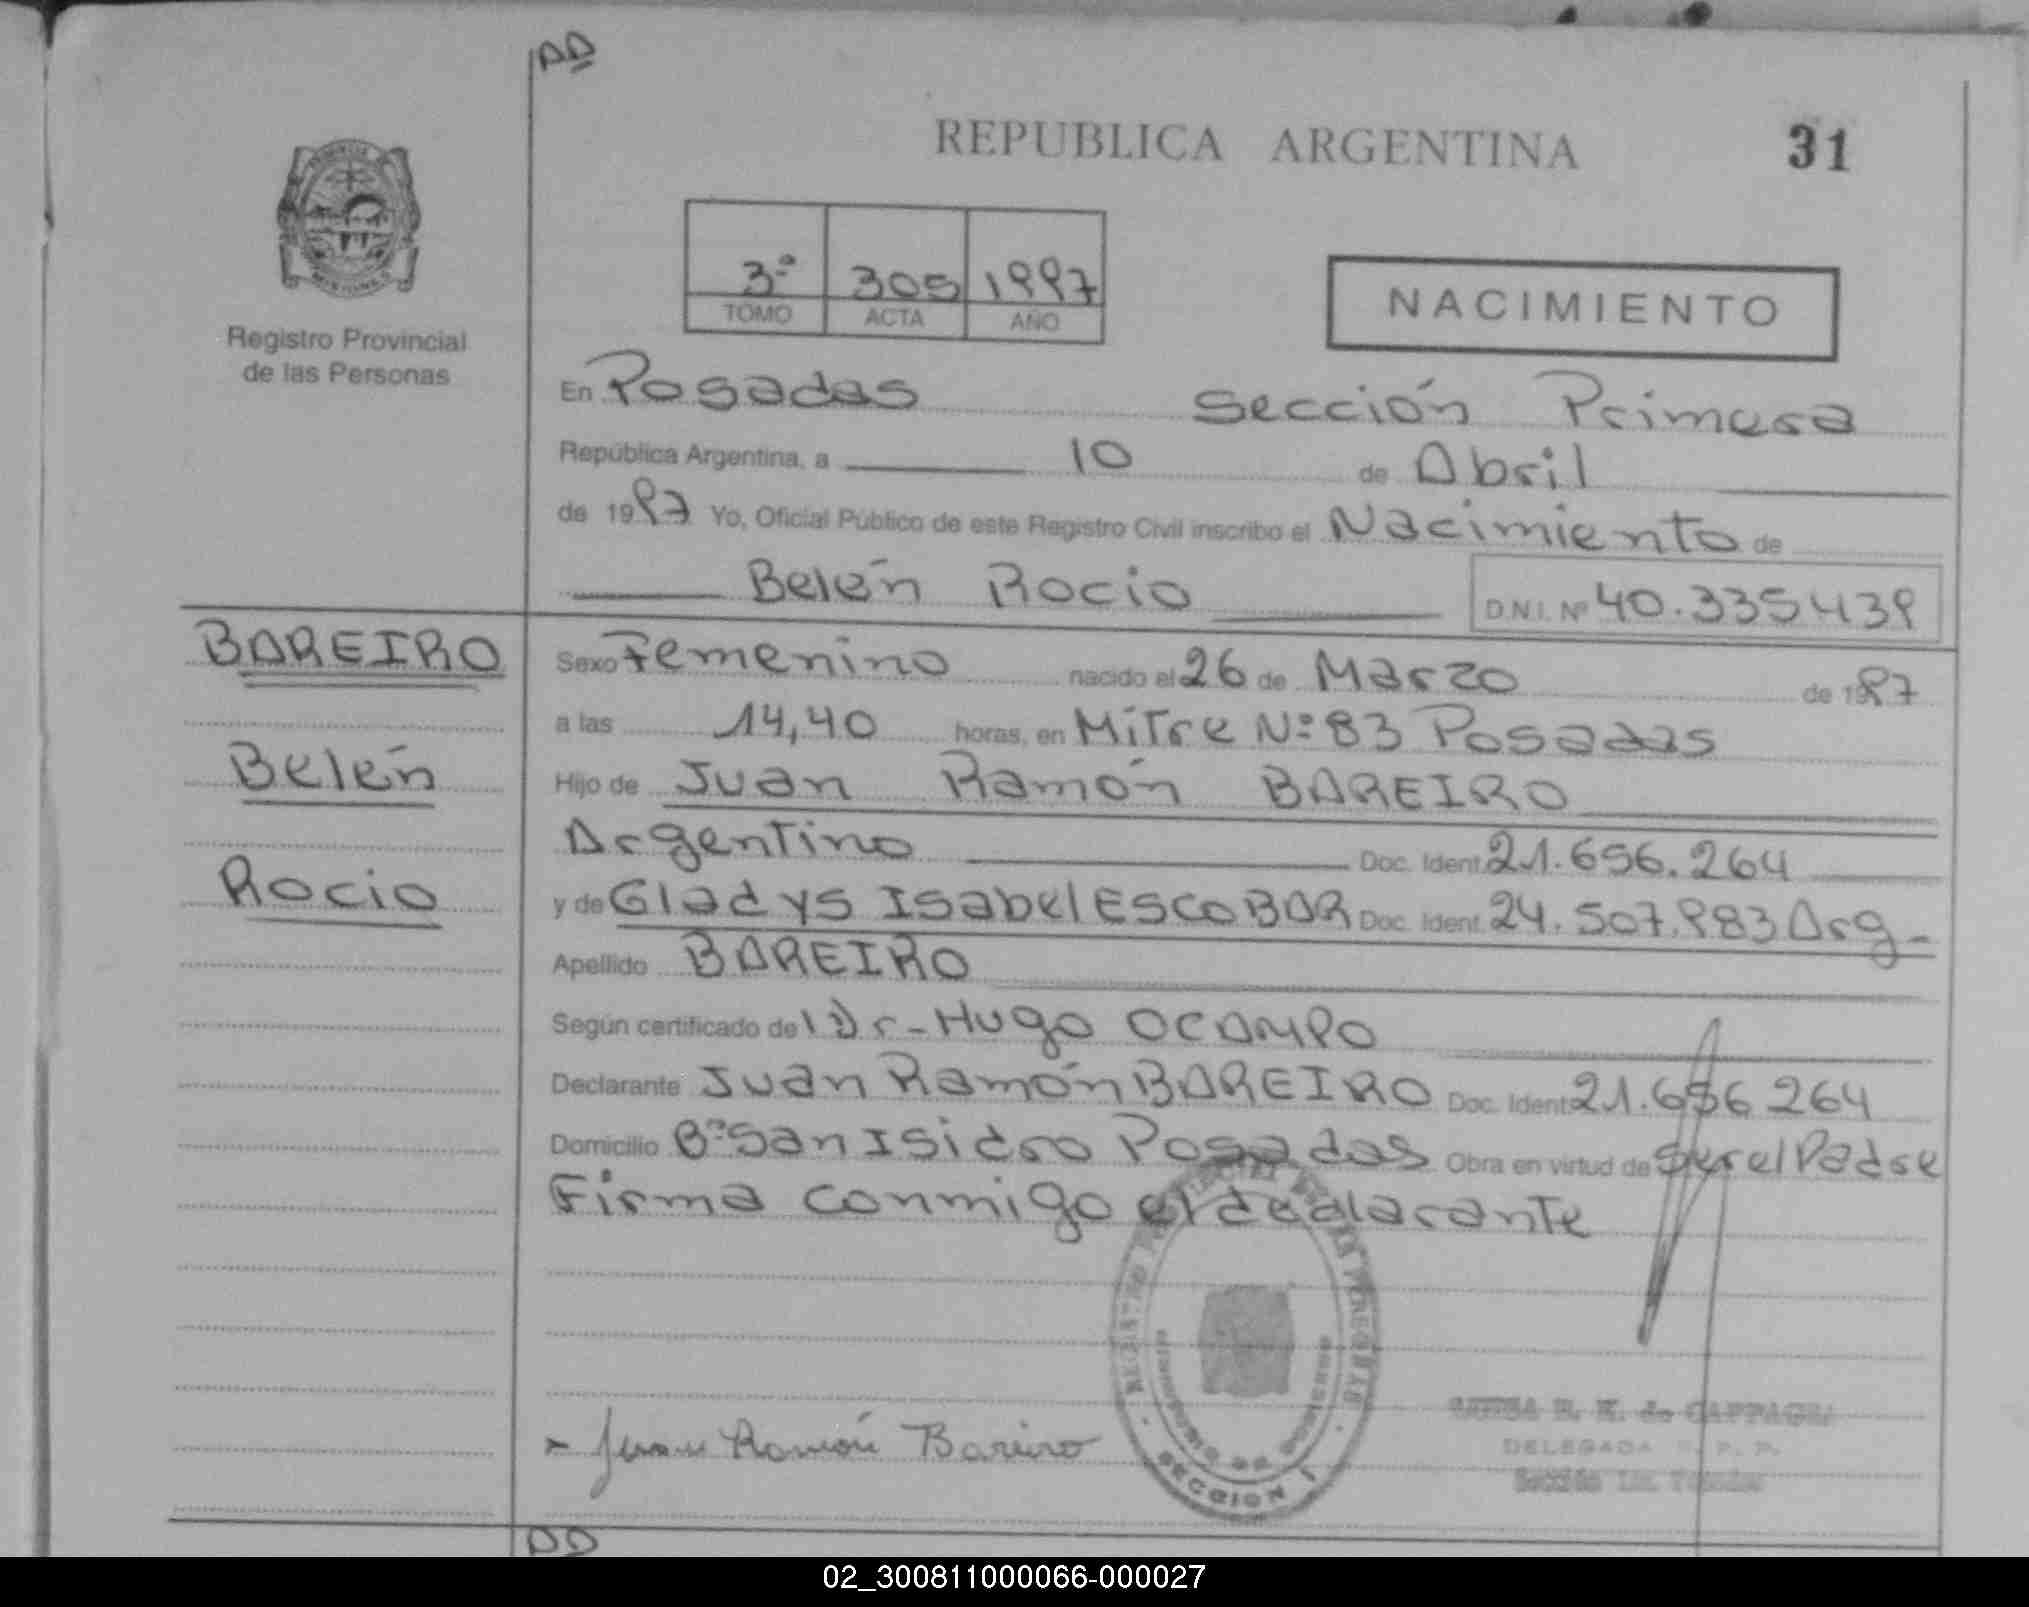 DD
REPUBLICA ARGENTINA 31
3º 305 1997
TOMO ACTA AÑO
NACIMIENTO
Registro Provincial
de las Personas
En Posadas Sección Primera
República Argentina, a 10 de Abril
de 1997 Yo, Oficial Público de este Registro Civil inscribo el Nacimiento de
Belén Rocio D.N.I. Nº 40.335439
BAREIRO
Belén
Rocio
Sexo Femenino nacido el 26 de Marzo de 1997
a las 14,40 horas, en Mitre Nº 83 Posadas
Hijo de Juan Ramón BAREIRO
Argentino Doc. Ident. 21.656.264
y de Gladys Isabel ESCOBAR Doc. Ident. 24.507.983 Arg-
Apellido BAREIRO
Según certificado del Dr- Hugo OCAMPO
Declarante Juan Ramón BAREIRO Doc. Ident. 21.656 264
Domicilio Bº San Isidro Posadas Obra en virtud de ser el Padre
Firma conmigo el declarante
Juan Ramón Bareiro
SECCION 1
de CAPPAGLI
DELEGADA R. P. P.
Sección
DD
02_300811000066-000027